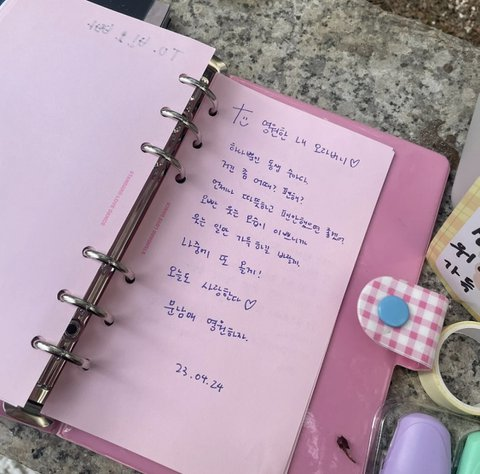 영원한 내 오라버니♡
하나뿐인 동생 수아다.
거긴 좀 어때? 편해?
언제나 따뜻하고 편안했으면 좋겠어
오빤 웃는 모습이 이쁘니까
웃는 일만 가득하길 바랄게.
나중에 또 올게!
오늘도 사랑한다♡
문남매 영원하자.
23.04.24